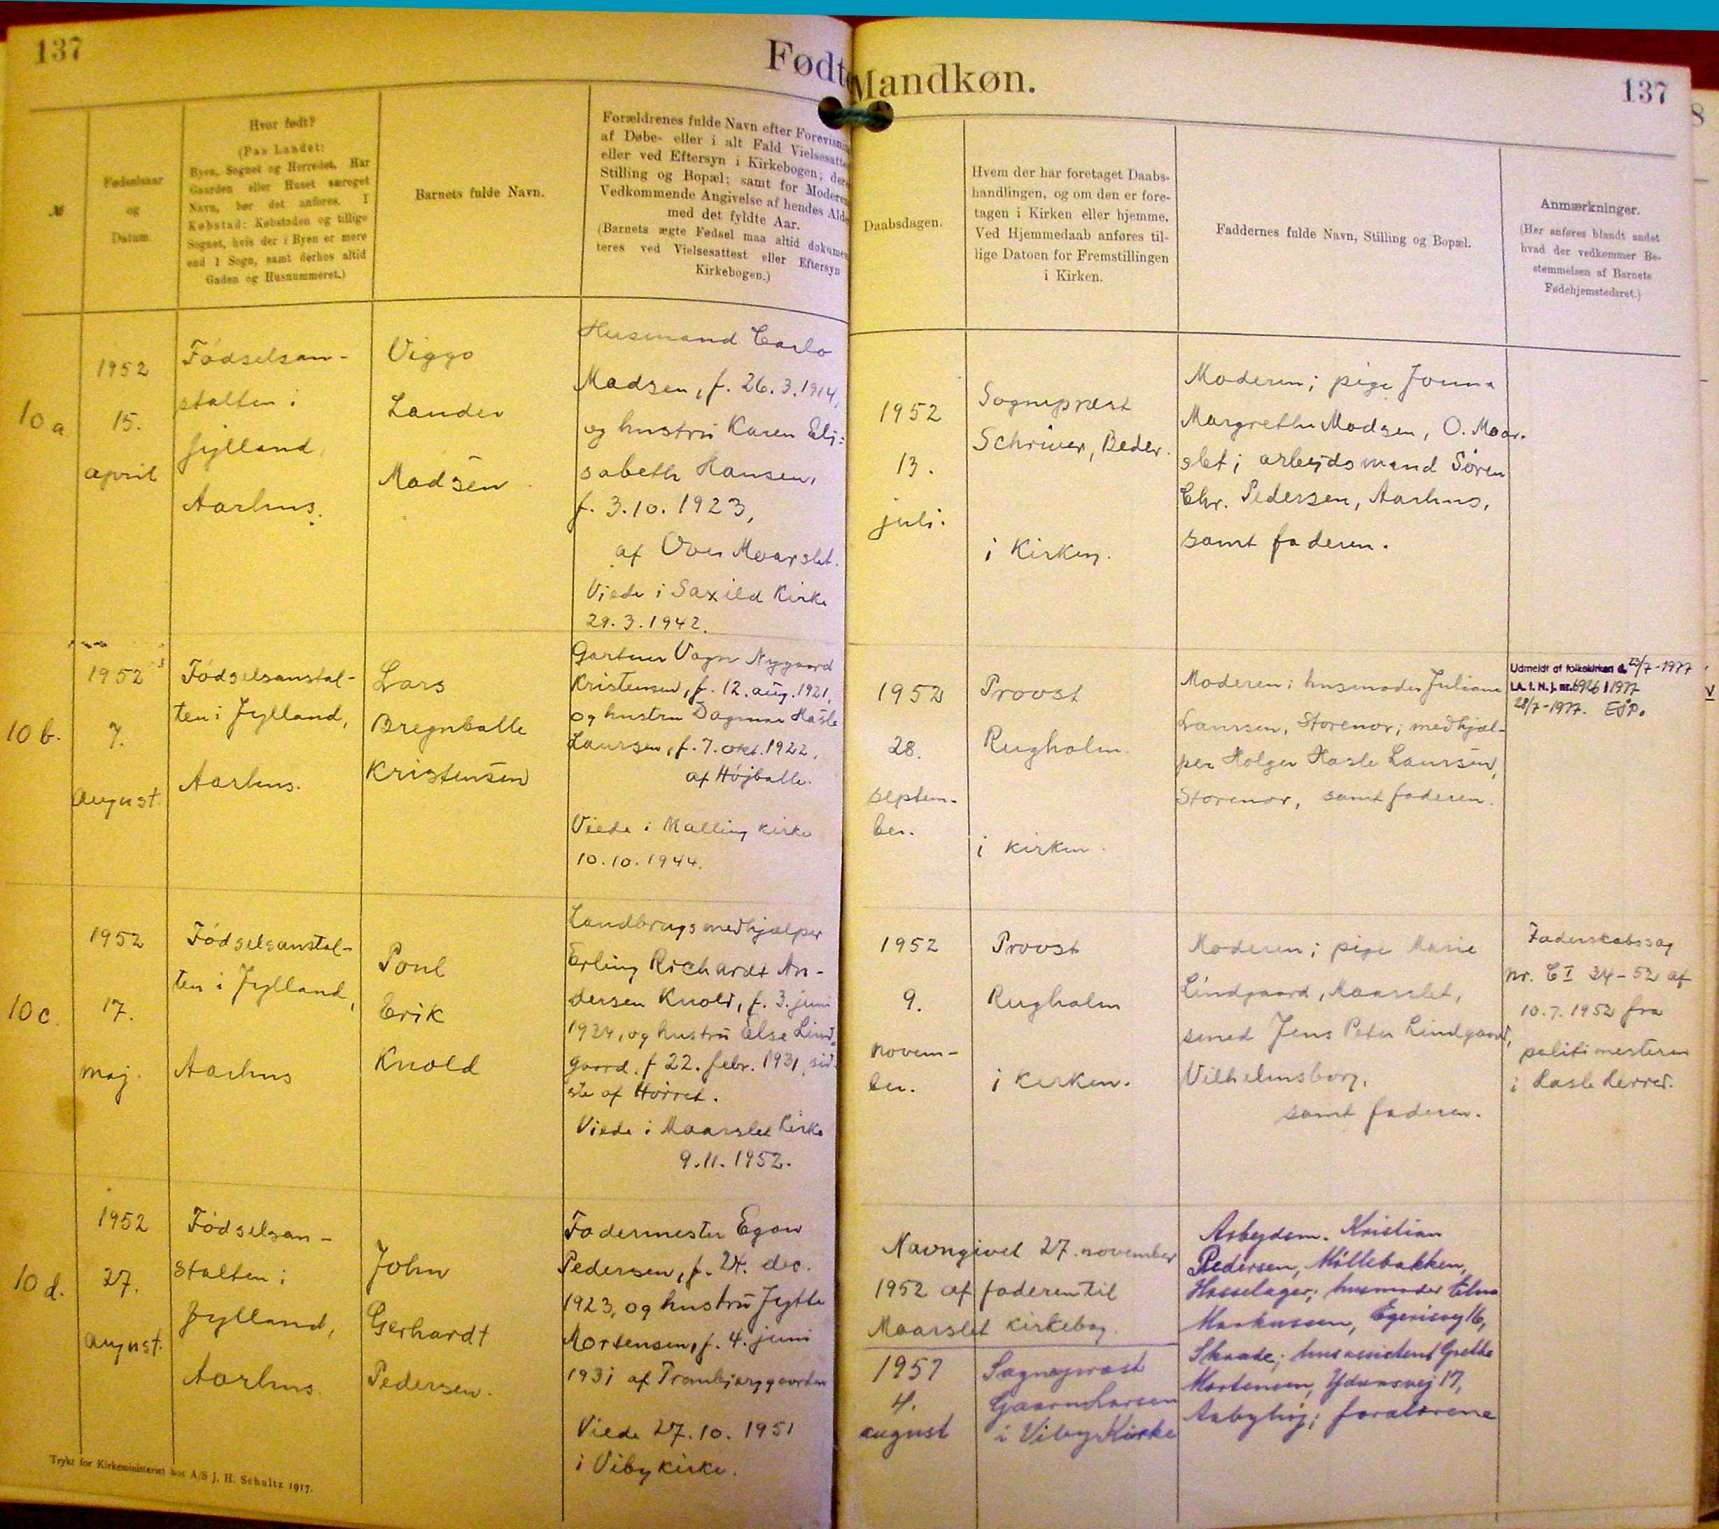 137
Født
Mandkøn.
137
8
№
Fødselsaar
og
Datum.
Hvor født?
(Paa Landet:
Byen, Sognet og Herredet. Har
Gaarden eller Huset særeget
Navn, bør det anføres. I
Købstad: Købstaden og tillige
Sognet, hvis der i Byen er mere
end 1 Sogn, samt derhos altid
Gaden og Husnummeret.)
Barnets fulde Navn.
Forældrenes fulde Navn efter Forevisnin
af Døbe- eller i alt Fald Vielsesatte
eller ved Eftersyn i Kirkebogen; dere
Stilling og Bopæl; samt for Moderen
Vedkommende Angivelse af hendes Alde
med det fyldte Aar.
(Barnets ægte Fødsel maa altid dokumen
teres ved Vielsesattest eller Eftersyn
Kirkebogen.)
Daabsdagen.
Hvem der har foretaget Daabs-
handlingen, og om den er fore-
tagen i Kirken eller hjemme.
Ved Hjemmedaab anføres til-
lige Datoen for Fremstillingen
i Kirken.
Faddernes fulde Navn, Stilling og Bopæl.
Anmærkninger.
(Her anføres blandt andet
hvad der vedkommer Be-
stemmelsen af Barnets
Fødehjemstedsret.)
10a
1952
15.
april
Fødselsan-
stalten i
Jylland,
Aarhus.
Viggo
Lander
Madsen
Husmand Carlo
Madsen, f. 26.3.1914,
og hustru Karen Eli=
sabeth Hansen,
f. 3.10.1923,
af Over Maarslet.
Viede i Saxild Kirke
29.3.1942.
1952
13.
juli.
Sognepræst
Schriver, Beder.
i Kirken.
Moderen; pige Jonna
Margrethe Madsen, O. Maar-
slet; arbejdsmand Søren
Chr. Pedersen, Aarhus,
samt faderen.
10b.
1952
7.
august.
Fødselsanstal-
ten i Jylland,
Aarhus.
Lars
Bregnballe
Kristensen
Gartner Vagn Nygaard
Kristensen, f. 12. aug. 1921,
og hustru Dagmar Hasle
Laursen, f. 7. okt. 1922,
af Højballe.
Viede i Malling kirke
10.10.1944.
1952
28.
septem-
ber.
Provst
Rugholm.
i kirken.
Moderen; husmoder Juliane
Laursen, Storenor; medhjæl-
per Holger Hasle Laursen,
Storenor, samt faderen.
Udmeldt af folkekirken d. 23/7-1977
I.A. f. N. j. nr. 6926 1977
28/7-1977. EJP.
10c.
1952
17.
maj.
Fødselsanstal-
ten i Jylland,
Aarhus
Poul
Erik
Knold
Landbrugsmedhjælper
Erling Richardt An-
dersen Knold, f. 3. juni
1924, og hustru Else Lind
gaard. f 22. febr. 1931, sid
ste af Hørret.
Viede i Maarslet Kirke
9.11.1952.
1952
9.
novem-
ber.
Provst
Rugholm
i kirken.
Moderen; pige Marie
Lindgaard, Maarslet,
smed Jens Peter Lindgaard,
Vilhelmsborg,
samt faderen.
Faderskabssag
nr. C I 34-52 af
10.7.1952 fra
politimesteren
i Hasle Herred.
10d.
1952
27.
august.
Fødselsan-
stalten i
Jylland,
Aarhus.
John
Gerhardt
Pedersen.
Fodermester Egon
Pedersen, f. 24. dec.
1923, og hustru Jytte
Mortensen, f. 4. juni
1931 af Trambjerggaarden
Viede 27.10.1951
i Viby kirke.
Navngivet 27. november
1952 af faderen til
Maarslet kirkebog.
1957
4.
august
Sognepræst
Gaarn Larsen
i Viby Kirke
Arbejdsm. Kristian
Pedersen, Møllebakken,
Hasselager; husmoder Elna
Markussen, Egernsvej 16,
Skaade; husassistent Grethe
Mortensen, Ydunsvej 17,
Aabyhøj; forældrene
Trykt for Kirkeministeriet hos A/S J. H. Schultz 1917.